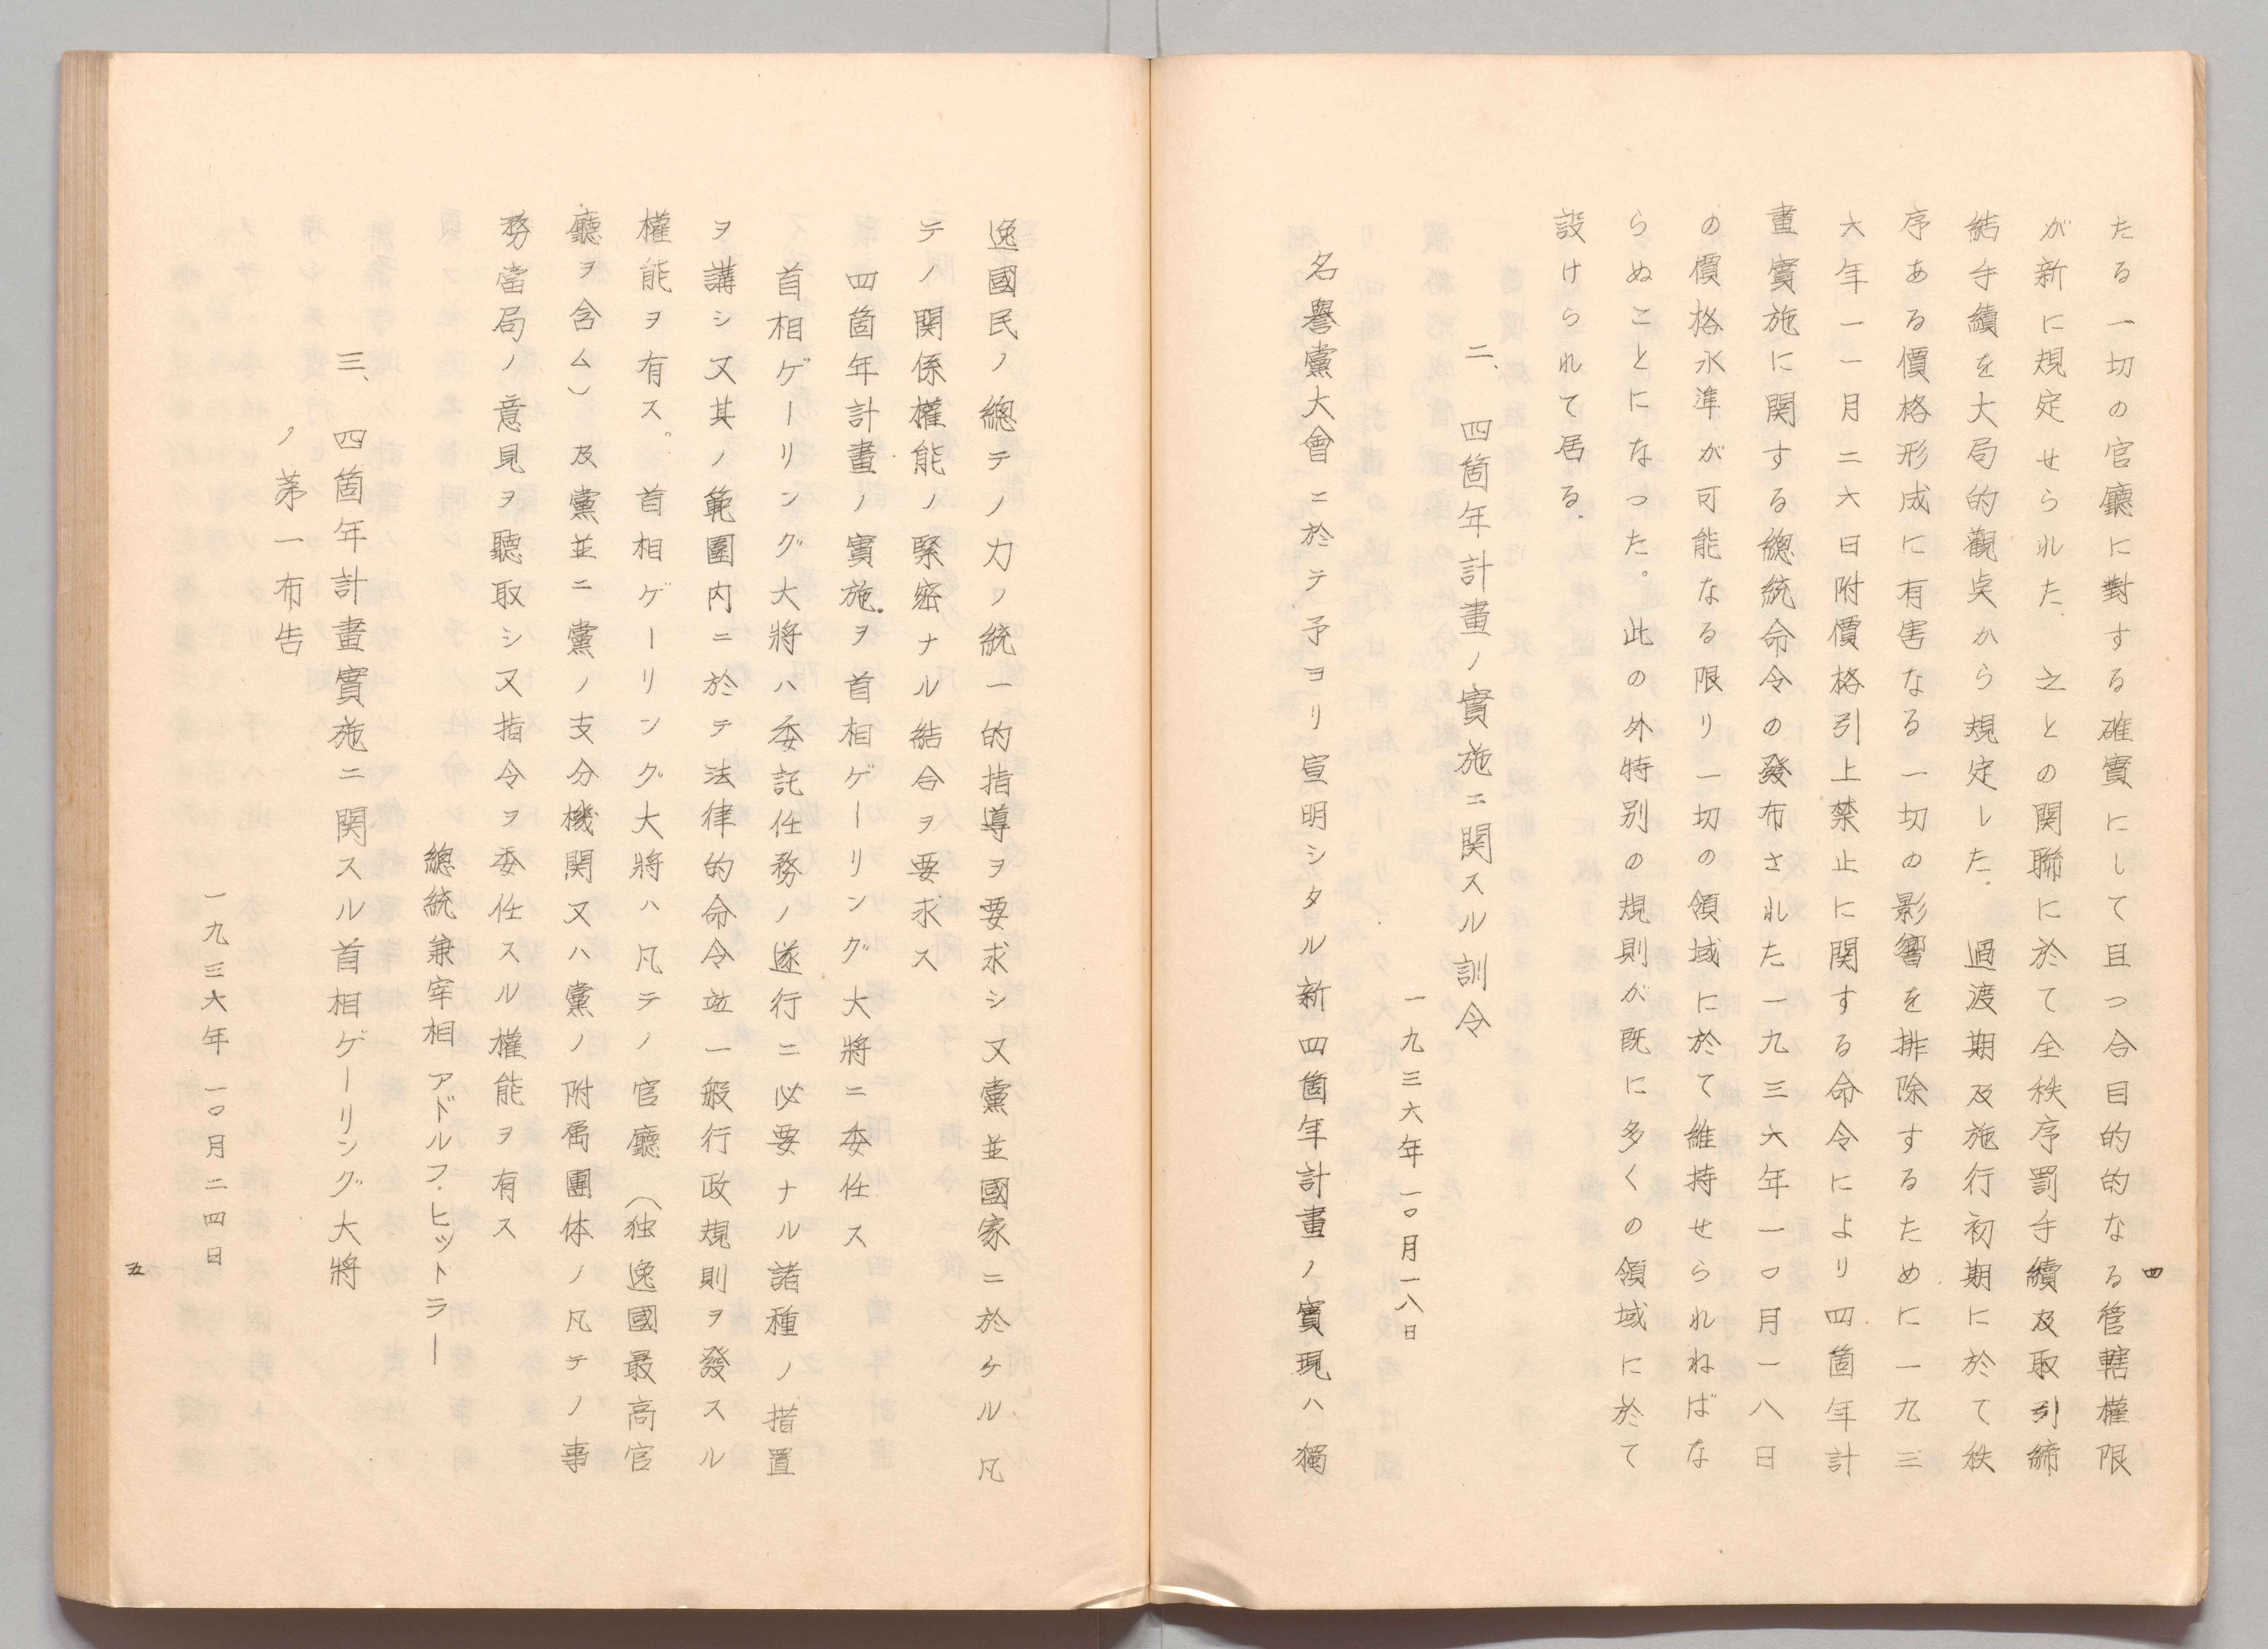 たる一切の官廳に對する確實にして且つ合目的的なる管轄權限
が新に規定せられた．之との関聯に於て全秩序罰手續及取引締
結手續を大局的觀奌から規定した．過渡期及施行初期に於て秩
序ある價格形成に有害なる一切の影響を排除するために一九三
六年一一月二六日附價格引上禁止に関する命令により四箇年計
畫實施に関する總統命令の發布された一九三六年一〇月一八日
の價格水準が可能なる限り一切の領域に於て維持せられねばな
らぬことになつた。此の外特別の規則が既に多くの領域に於て
設けられて居る．
二、四箇年計畫ノ實施ニ関スル訓令
一九三六年一〇月一八日
名譽黨大會ニ於テ予ヨリ宣明シタル新四箇年計畫ノ實現ハ獨
四
逸國民ノ總テノ力ノ統一的指導ヲ要求シ又黨並國家ニ於ケル凡
テノ関係權能ノ緊密ナル結合ヲ要求ス
四箇年計畫ノ實施ヲ首相ゲーリング大將ニ委任ス
首相ゲーリング大將ハ委託任務ノ遂行ニ必要ナル諸種ノ措置
ヲ講シ又其ノ範圍内ニ於テ法律的命令竝一般行政規則ヲ發スル
權能ヲ有ス。首相ゲーリング大將ハ凡テノ官廳（独逸國最高官
廳ヲ含ム）及黨並ニ黨ノ支分機関又ハ黨ノ附屬團体ノ凡テノ事
務當局ノ意見ヲ聽取シ又指令ヲ委任スル權能ヲ有ス
總統兼宰相 アドルフ・ヒットラー
三、四箇年計畫實施ニ関スル首相ゲーリング大將
ノ苐一布告
一九三六年一〇月二四日
五